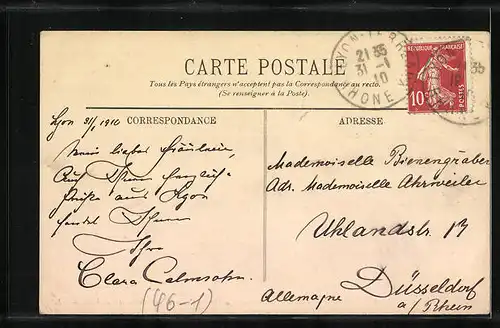 CARTE POSTALE
Tous les Pays étrangers n'acceptent pas la Correspondance au recto.
(Se renseigner à la Poste).
LYON-TERRE
21 35
31 -1
10
RHONE
REPUBLIQUE FRANÇAISE
10
POSTES
Lyon 31/1 1910
CORRESPONDANCE
Mein liebes Fräulein,
Ihnen herzliche
Grüße aus Lyon
sendet Ihnen
Ihre
Clara Calmsohn
(46-1)
ADRESSE
Mademoiselle Bienengräber
Adr. Mademoiselle Ahrweiler
Uhlandstr. 13
Düsseldorf
a/Rhein
Allemagne